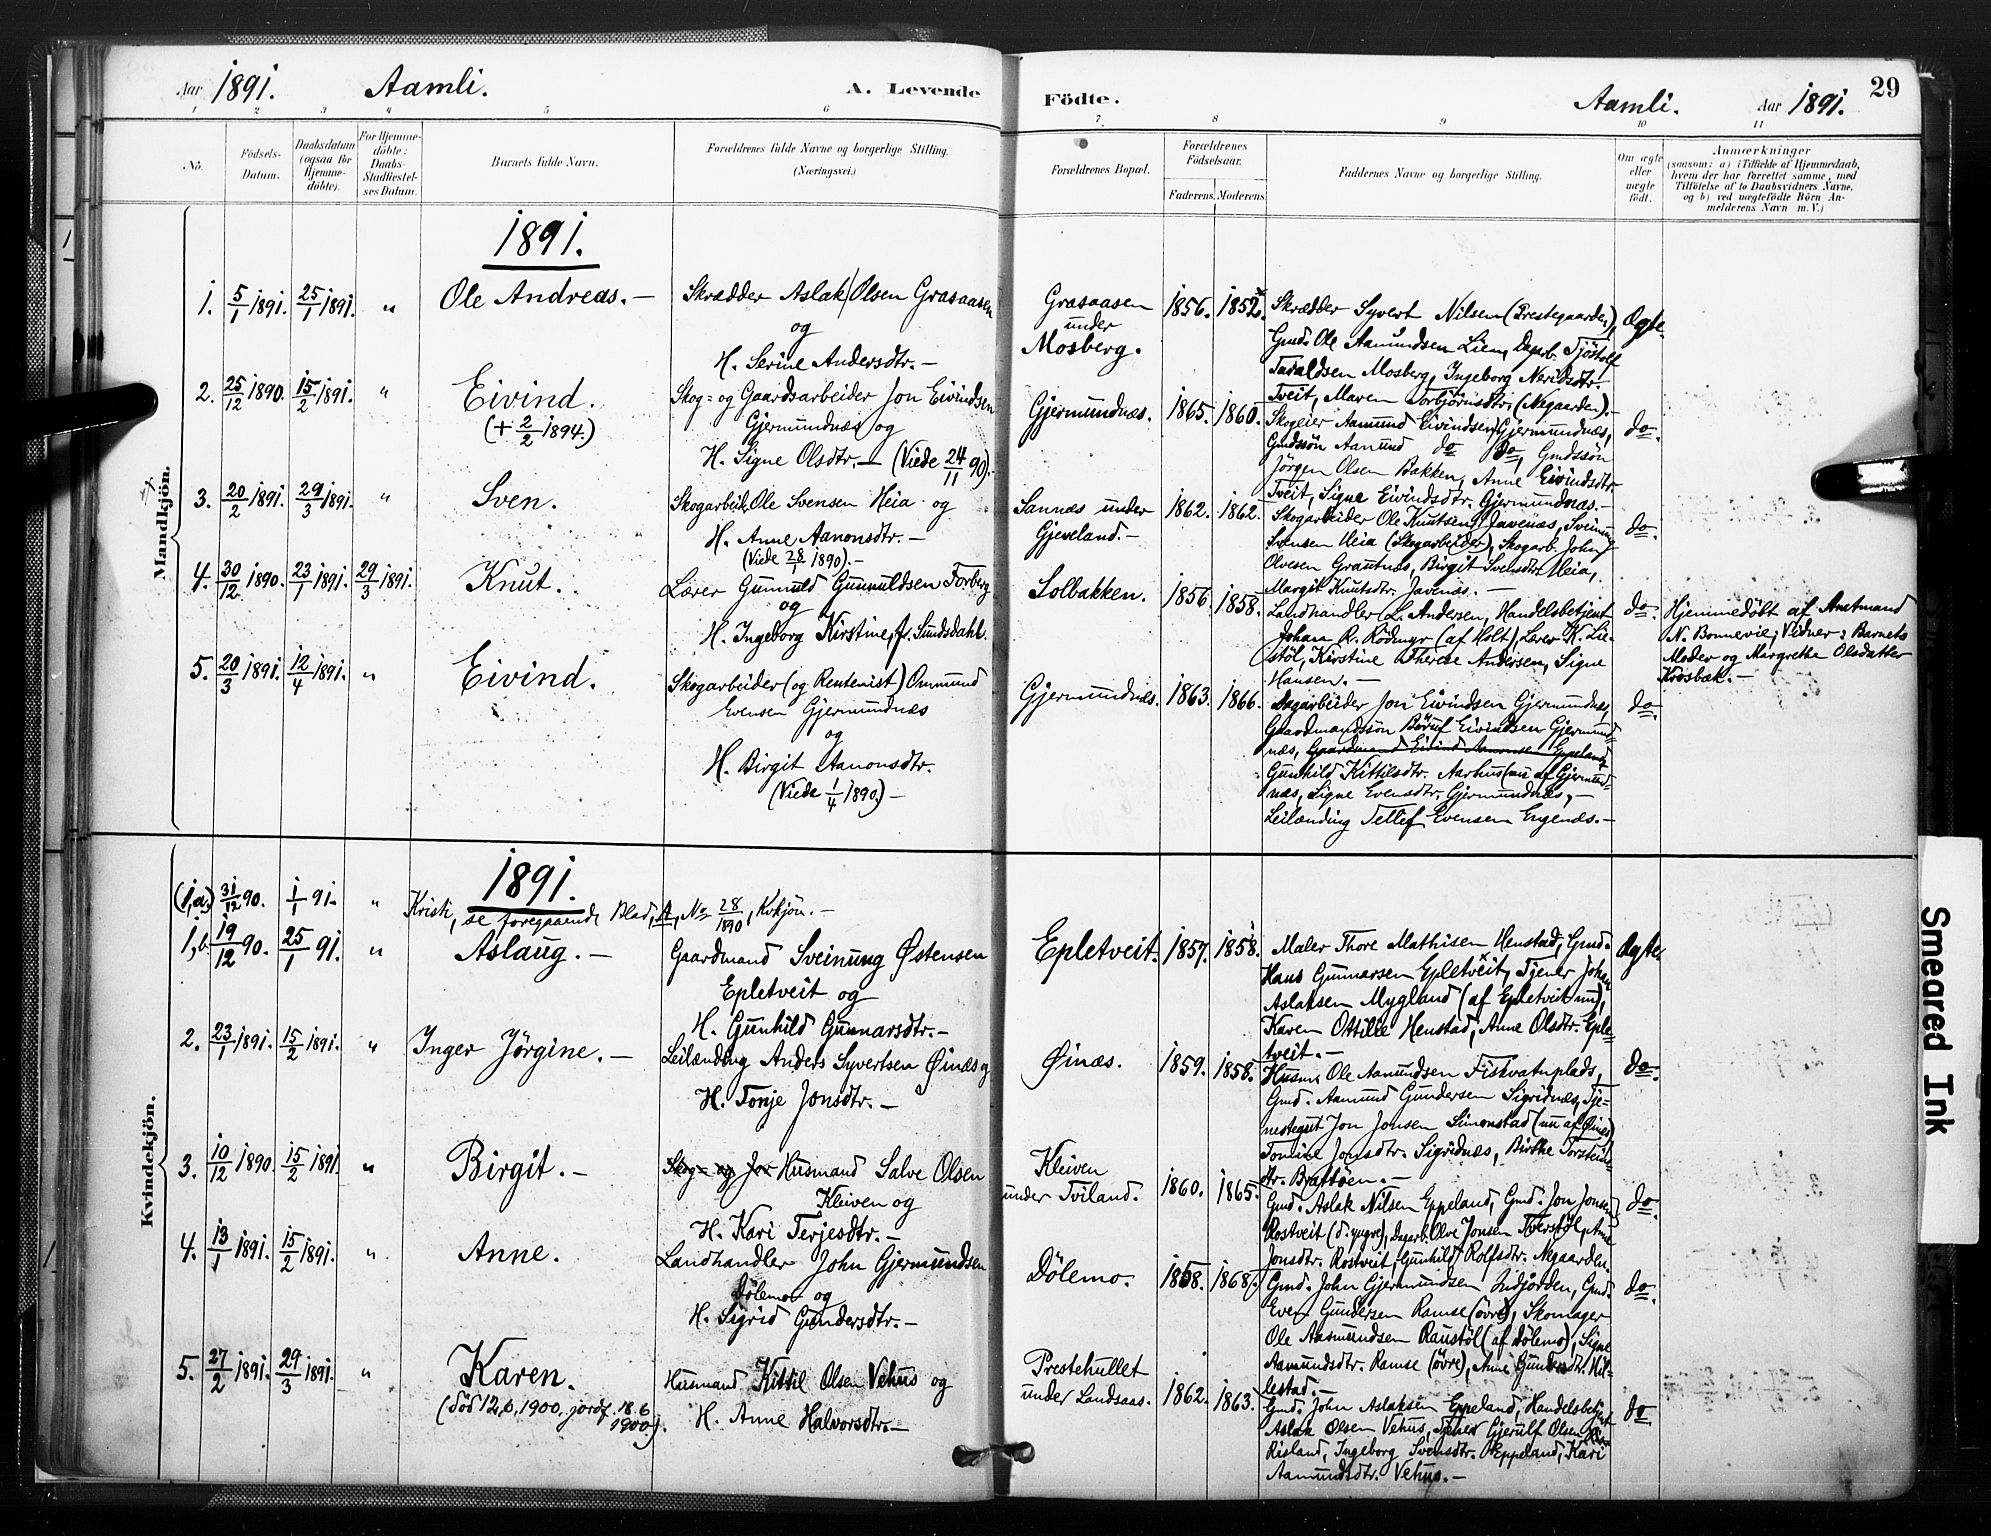 Aar 1891. Aamli. A. Levende
Födte. Aamli. Aar 1891. 29
1 2 3 4 5 6
7. 8 9 10 11
No.
Födsels-
Datum.
Daabsdatum
(ogsaa for
Hjemme-
döbte).
For Hjemme-
döbte:
Daabs-
Stadfæstel-
ses Datum.
Barnets fulde Navn.
Forældrenes fulde Navne og borgerlige Stilling.
(Næringsvei.)
Forældrenes Bopæl.
Forældrenes
Födselsaar.
Faderens. Moderens.
Faddernes Navne og borgerlige Stilling.
Om ægte
eller
uægte
født.
Anmærkninger
(saasom: a) i Tilfælde af Hjemmedaab,
hvem der har forrettet samme, med
Tilföielse af to Daabsvidners Navne.
og b) ved uægtefödte Börn An-
melderens Navn m. V.)
Mandkjön.
1891.
1. 5/1 1891. 25/1 1891. " Ole Andreas. —
Skrædder Aslak Olsen Grasaasen
og
H. Serine Andersdtr. —
Grasaasen
under
Mosberg.
1856. 1852.
Skrædder Syvert Nilsen (Prestegaarden),
Gmd. Ole Aamundsen Lien, Dagarb. Tjöstolf
Taraldsen Mosberg, Ingeborg Neridsdtr.
Tveit, Maren Torbjörnsdtr. (Negaarden). —
Ægte.
2. 25/12 1890. 15/2 1891. " Eivind.
(+ 2/2 1894.)
Skog= og Gaardsarbeider Jon Eivindsen
Gjermundnæs og
H. Signe Olsdtr. — (Viede 24/11 90). —
Gjermundnæs. 1865. 1860.
Skogeier Aamund Eivindsen Gjermundnæs,
Gmdssön Aanund do do, Gmdssön
Jörgen Olsen Bakken, Anne Eivindsdtr.
Tveit, Signe Eivindsdtr. Gjermundnæs. —
do.
3. 20/2 1891. 29/3 1891. " Sven.
Skogarbeid. Ole Svensen Heia og
H. Anne Aanonsdtr. —
(Viede 28/1 1890). —
Sannæs under
Gjeveland. —
1862. 1862.
Skogarbeider Ole Knutsen Javenæs, Sveinung
Svensen Heia (Skogarbeider), Skogarb. John
Olvesen Grautnæs, Birgit Svensdtr. Heia,
Margit Knutsdtr. Javenæs. —
do.
4. 30/12 1890. 23/1 1891. 29/3 1891. Knut.
Lærer Gunnuld Gunnuldsen Forberg
og
H. Ingeborg Kirstine, f. Sundsdahl.
Solbakken. 1856. 1858.
Landhandler L. Andersen, Handelsbetjent
Johan R. Rödmyr (af Holt), Lærer K. Lie-
stöl, Kirstine Therese Andersen, Signe
Hansen. —
do.
Hjemmedøbt af Amtmand
N. Bonnevie; Vidner: Barnets
Moder og Margrethe Olsdatter
Krosbæk. —
5. 20/3 1891. 12/4 1891. " Eivind.
Skogarbeider (og Rentenist) Ommund
Evensen Gjermundnæs
og
H. Birgit Aanonsdtr.
(Viede 1/4 1890.) —
Gjermundnæs. 1863. 1866.
Dagarbeider Jon Eivindsen Gjermundnæs,
Gaardmandssön Börulf Eivindsen Gjermund-
næs, Gaardmand Eivind Aanonsen Eppeland,
Gunhild Kittilsdtr. Aarhus (nu af Gjermund-
næs, Signe Evensdtr. Gjermundnæs, —
Leilænding Tellef Evensen Engenæs. —
do.
Kvindekjön.
1891.
(1,a) 31/12 90. 1/1 91. " Kristi, se foregaaende Blad, A, No 28/1890, Kvkjön. —
1,b. 19/12 90. 25/1 91. " Aslaug. —
Gaardmand Sveinung Østensen
Epletveit og
H. Gunhild Gunnarsdtr. —
Epletveit. 1857. 1858.
Maler Thore Mathisen Henstad, Gmd.
Hans Gunnarsen Epletveit, Tjener Johan
Aslaksen Mygland (af Epletveit nu),
Karen Ottilie Henstad, Anne Olsdtr. Eple-
tveit. —
Ægte.
2. 23/1 1891. 15/2 1891. " Inger Jörgine. —
Leilænding Anders Syvertsen Øinæs og
H. Tonje Jonsdtr. —
Øinæs. 1859. 1858.
Husm. Ole Aamundsen Fiskvatnplads,
Gmd. Aamund Gundersen Sigridnæs, Tje-
nestegut Jon Jonsen Simonstad (nu af Øinæs)
Tomine Jonsdtr. Sigridnæs, Birthe Torstein-
dtr. Bratböen. —
do.
3. 10/12 1890. 15/2 1891. " Birgit. —
Skog= og Jor Husmand Salve Olsen
Kleiven og
H. Kari Terjesdtr. —
Kleiven
under Tviland.
1860. 1865.
Gmd. Aslak Nilsen Eppeland, Gmd. Jon Jonsen
Rostveit (d. yngre), Dagarb. Olve Jonsen Tverstöl, Anne
Jonsdtr. Rostveit, Gunhild Rolfsdtr. Negaarden.
do.
4. 13/1 1891. 15/2 1891. " Anne.
Landhandler John Gjermundsen
Dölemo og
H. Sigrid Gundersdtr. —
Dölemo. 1858. 1868.
Gmd. John Gjermundsen Indjorden, Gmd.
Even Gundersen Ramse (övre), Skomager
Ole Aasmundsen Raustöl (af Dölemo), Signe
Aamundsdtr. Ramse (övre), Anne Gundersdtr. Hil-
lestad. —
do.
5. 27/2 1891. 29/3 1891. " Karen.
(död 12,6,1900, jordf. 18.6
1900).
Husmand Kittil Olsen Vehus og
H. Anne Halvorsdtr. —
Prestehullet
under Landsaas.
1862. 1863.
Gmd. John Aslaksen Eppeland, Handelsbetjent
Aslak Olsen Vehus, Tjener Gjerulf Olsen
Risland, Ingeborg Svensdtr. Eppeland, Kari
Aamundsdtr. Vehus. —
do.
Smeared Ink